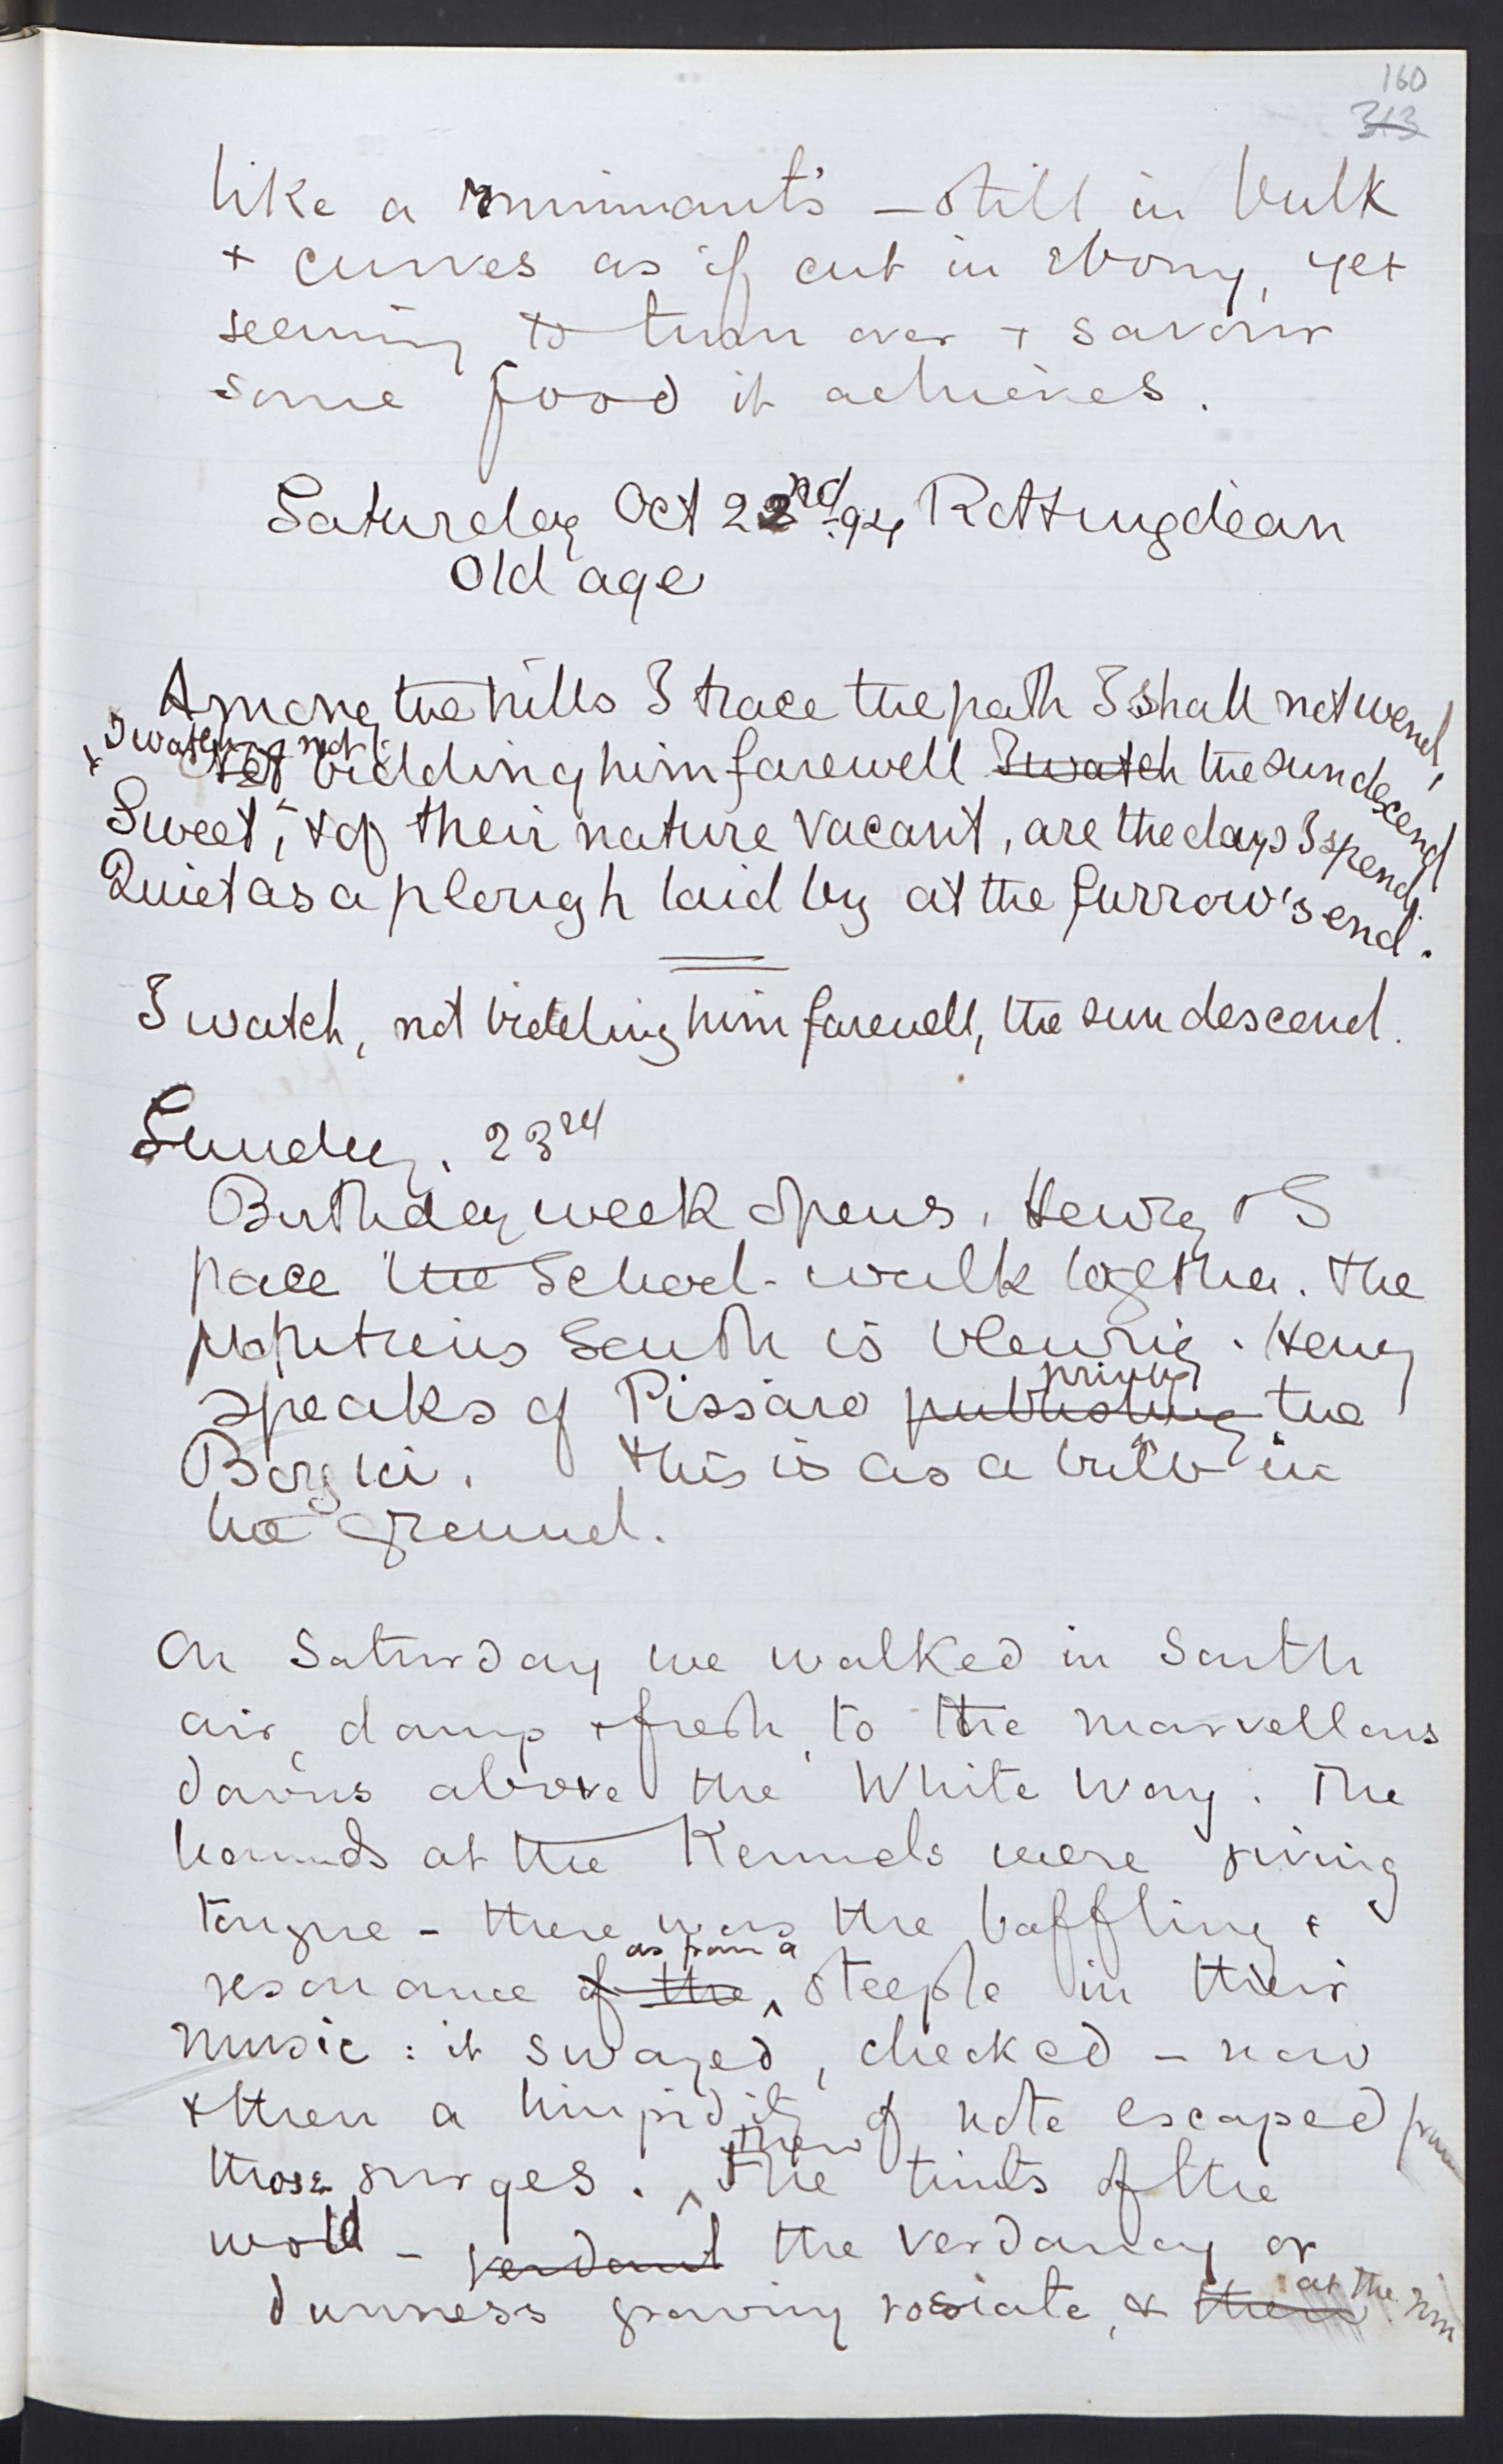 160
313
like a ruminant's – still in bulk
+ curves as if cut in ebony, yet
seeming to turn over + savour
some food it achieves.
Saturday Oct 22nd -94 Rottingdean
Old age
Among the hills I trace the path I shall not wend,
I watch, not
bidding him farewell I watch the sun descend
Sweet, + of their nature vacant, are the days I spend,
Quiet as a plough laid by at the furrow's end.
I watch, not bidding him farewell, the sun descend.
Sunday. 23rd
Birthday week opens. Henry + I
pace the School-walk together. The
South is blowing. Henry
printing
speaks of Pissaro publishing the
Borgia. This is as a bulb in
the ground.
On Saturday we walked in South
air, damp + fresh, to the marvellous
downs above the White Way. The
hounds at the Kennels were giving
tongue – there was the baffling +
as from a
resonance of the ^ steeple in their
music: it swayed, checked – now
+ then a limpidity of note escaped from
then
those surges. ^ The tints of the
wold – verdant the verdancy or
at the rim
dunness growing rosiate, & there